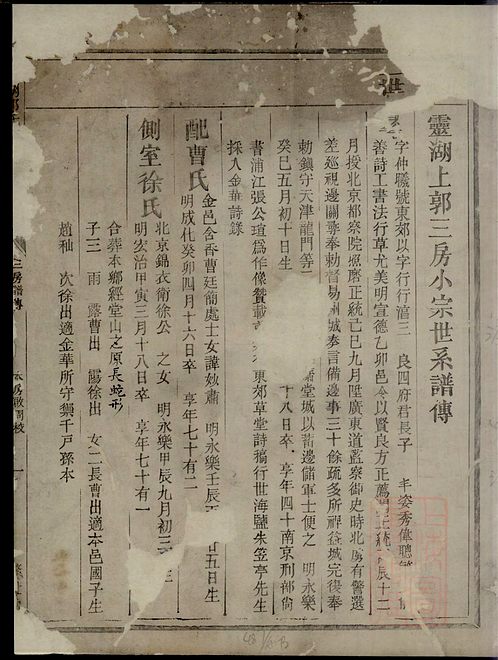 靈湖上郭三房小宗世系譜傳
世
字仲曦號東郊以字行行瀛三 良四府君長子 年姿秀偉聰
善詩工書法行草尤美明宣德乙卯邑令以賢良方正薦 正統 辰十二
月授北京都察院照磨正統己巳九月陞廣東道監察御史時北虜有警選
差巡視邊關尋奉勑督易州城奏言備邊事三十餘疏多所裨益城完復奉
勑鎮守天津龍門等 堂城以蓄邊儲軍士便之 明永樂
癸巳五月初十日生 十八日卒 享年四十南京刑部尚
書浦江張公瑄爲作像贊載 東郊草堂詩稿行世海鹽朱笠亭先生
採入金華詩錄
配曹氏 金邑含香曹廷簡處士女諱妙肅 明永樂壬辰 廿五日生
明成化癸卯四月十六日卒 享年七十有二
側室徐氏 北京錦衣衛徐公 之女 明永樂甲辰九月初三
明宏治甲寅三月十八日卒 享年七十有一
合葬本鄉經堂山之原長蛇形
子三 雨 露曹出 靄徐出 女二長曹出適本邑國子生
趙秞 次徐出適金華所守禦千戶孫本
三房譜傳